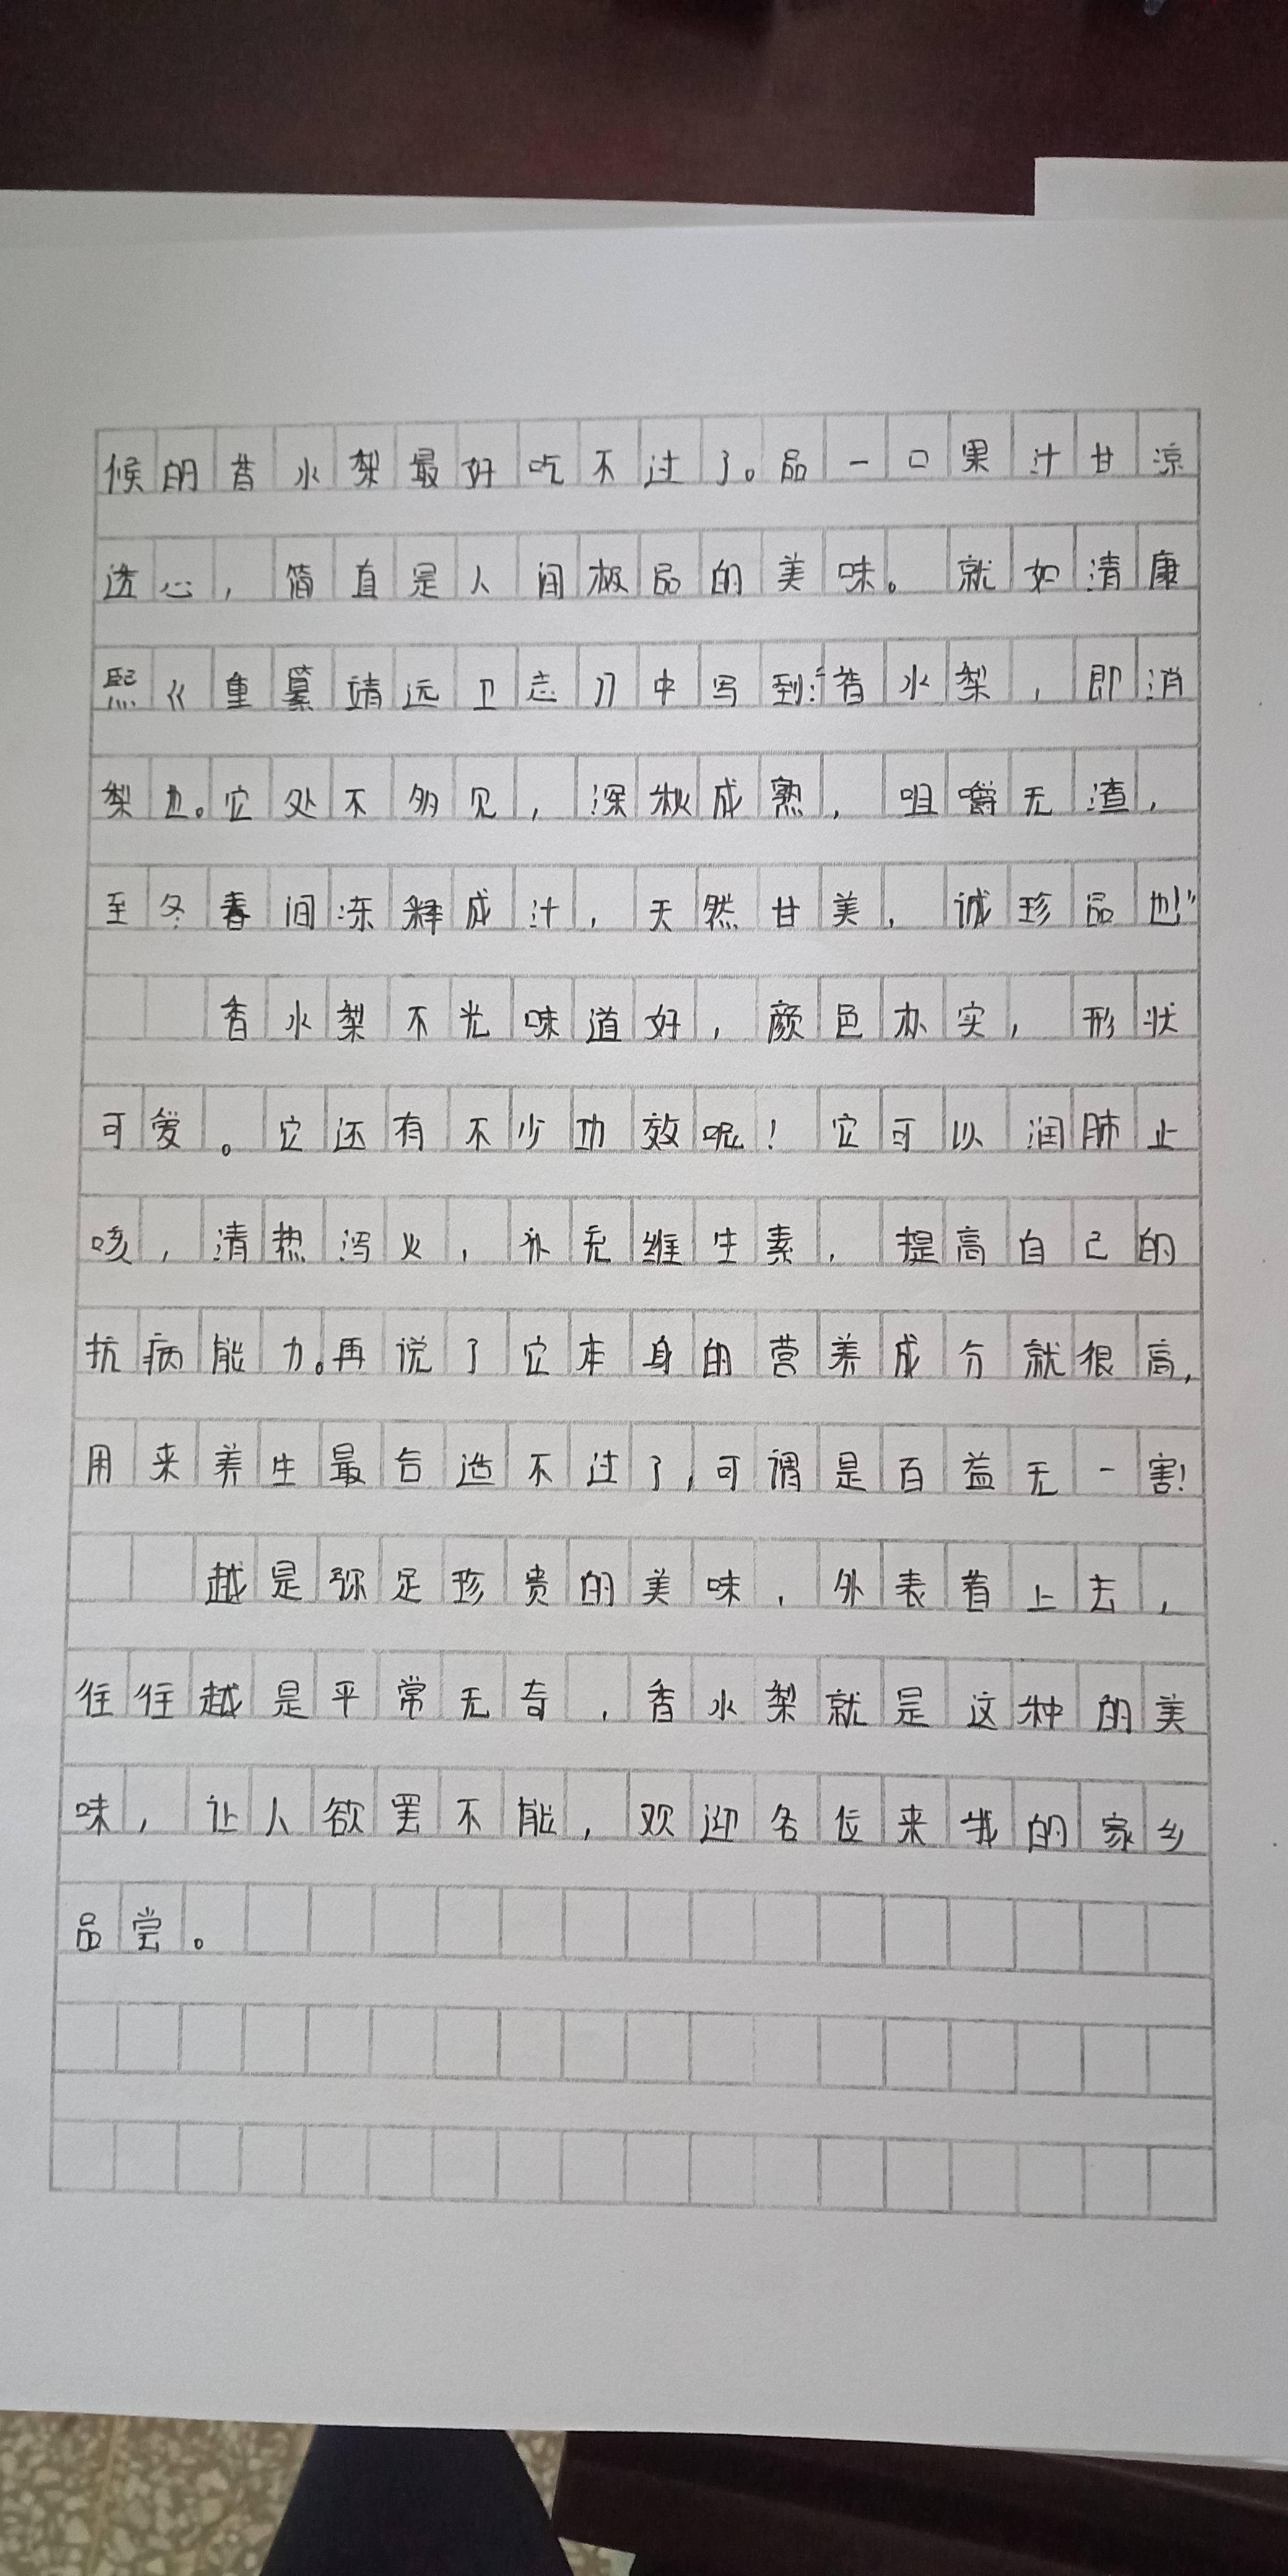 候的香水梨最好吃不过了。品一口果汁甘凉
透心，简直是人间极品的美味。就如清康
熙《重纂靖远卫志》中写到:“香水梨，即消
梨也。它处不多见，深秋成熟，咀嚼无渣，
至冬春间冻释成汁，天然甘美，诚珍品也”
香水梨不光味道好，颜色朴实，形状
可爱。它还有不少功效呢！它可以润肺止
咳，清热泻火，补充维生素，提高自己的
抗病能力。再说了它本身的营养成分就很高，
用来养生最合适不过了，可谓是百益无一害！
越是弥足珍贵的美味，外表看上去，
往往越是平常无奇，香水梨就是这种的美
味，让人欲罢不能，欢迎各位来我的家乡
品尝。